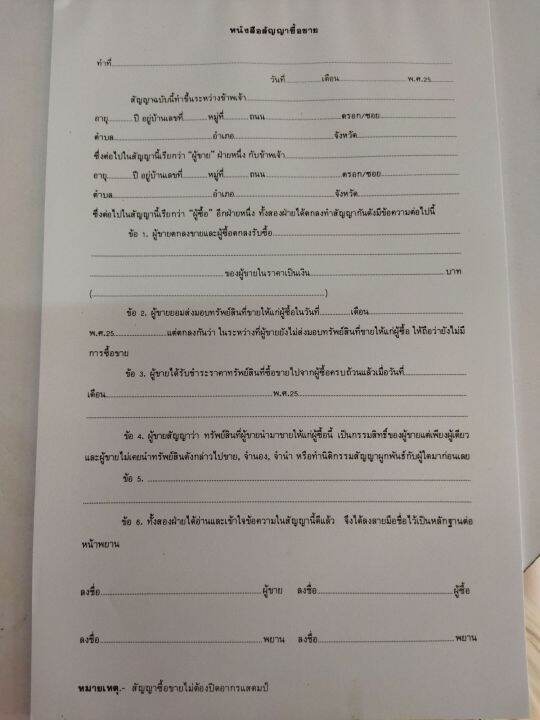 หนังสือสัญญาซื้อขาย
ทำที่
วันที่ เดือน พ.ศ.25
สัญญาฉบับนี้ทำขึ้นระหว่างข้าพเจ้า
อายุ ปี อยู่บ้านเลขที่ หมู่ที่ ถนน ตรอก/ซอย
ตำบล อำเภอ จังหวัด
ซึ่งต่อไปในสัญญานี้เรียกว่า "ผู้ขาย" ฝ่ายหนึ่ง กับข้าพเจ้า
อายุ ปี อยู่บ้านเลขที่ หมู่ที่ ถนน ตรอก/ซอย
ตำบล อำเภอ จังหวัด
ซึ่งต่อไปในสัญญานี้เรียกว่า "ผู้ซื้อ" อีกฝ่ายหนึ่ง ทั้งสองฝ่ายได้ตกลงทำสัญญากันดังมีข้อความต่อไปนี้
ข้อ 1. ผู้ขายตกลงขายและผู้ซื้อตกลงรับซื้อ
ของผู้ขายในราคาเป็นเงิน บาท
( )
ข้อ 2. ผู้ขายยอมส่งมอบทรัพย์สินที่ขายให้แก่ผู้ซื้อในวันที่ เดือน
พ.ศ.25 แต่ตกลงกันว่า ในระหว่างที่ผู้ขายยังไม่ส่งมอบทรัพย์สินที่ขายให้แก่ผู้ซื้อ ให้ถือว่ายังไม่มี
การซื้อขาย
ข้อ 3. ผู้ขายได้รับชำระราคาทรัพย์สินที่ซื้อขายไปจากผู้ซื้อครบถ้วนแล้วเมื่อวันที่
เดือน พ.ศ.25
ข้อ 4. ผู้ขายสัญญาว่า ทรัพย์สินที่ผู้ขายนำมาขายให้แก่ผู้ซื้อนี้ เป็นกรรมสิทธิ์ของผู้ขายแต่เพียงผู้เดียว
และผู้ขายไม่เคยนำทรัพย์สินดังกล่าวไปขาย, จำนอง, จำนำ หรือทำนิติกรรมสัญญาผูกพันธ์กับผู้ใดมาก่อนเลย
ข้อ 5.
ข้อ 6. ทั้งสองฝ่ายได้อ่านและเข้าใจข้อความในสัญญานี้ดีแล้ว จึงได้ลงลายมือชื่อไว้เป็นหลักฐานต่อ
หน้าพยาน
ลงชื่อ ผู้ขาย ลงชื่อ ผู้ซื้อ
ลงชื่อ พยาน ลงชื่อ พยาน
หมายเหตุ.- สัญญาซื้อขายไม่ต้องปิดอากรแสตมป์